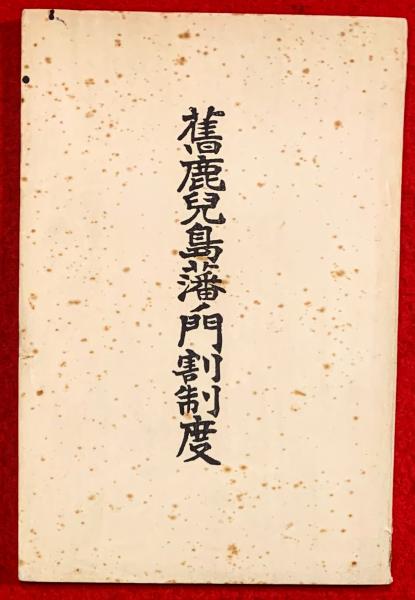 舊鹿兒島藩ノ門割制度